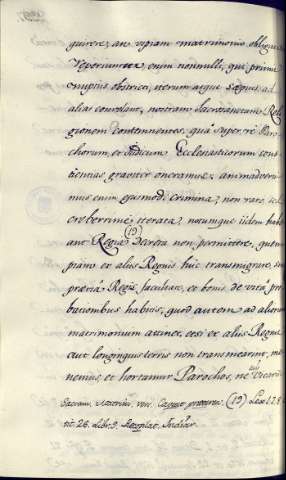 quirere, an uspiam matrimonio obligati
reperiuntur enim nonnulli, qui primis
nuptiis obstricti, iterum atque sæpius ad
alias convolant, nostram sacrosanctam Reli
gionem contemnentes, quâ super re Paro
chorum, et Judicum Ecclesiasticorum cons
cientias graviter oneramus, animadverti
mus enim ejusmodi crimina, non raro, sed
creberrime iterata, notumque iidem habe
ant Regia (19) Decreta non permittere, quem
piam ex aliis Regnis huc transmigrare, sine
Regis facultate, et bonis de vita pro
bationibus habitis, quod autem ad aliorum
matrimonium attinet, etsi ex aliis Regnis
aut longinquis terris non transmearint, mo
nemus, et hortamur Parochos, ne Vicarii
(19) Lex 1. 2. 3.
tit. 26. libr. 9. Recopilat. Indiar.